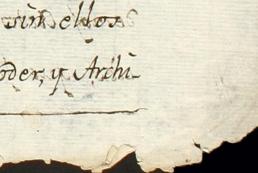 sin ellos
oder, y Archi-